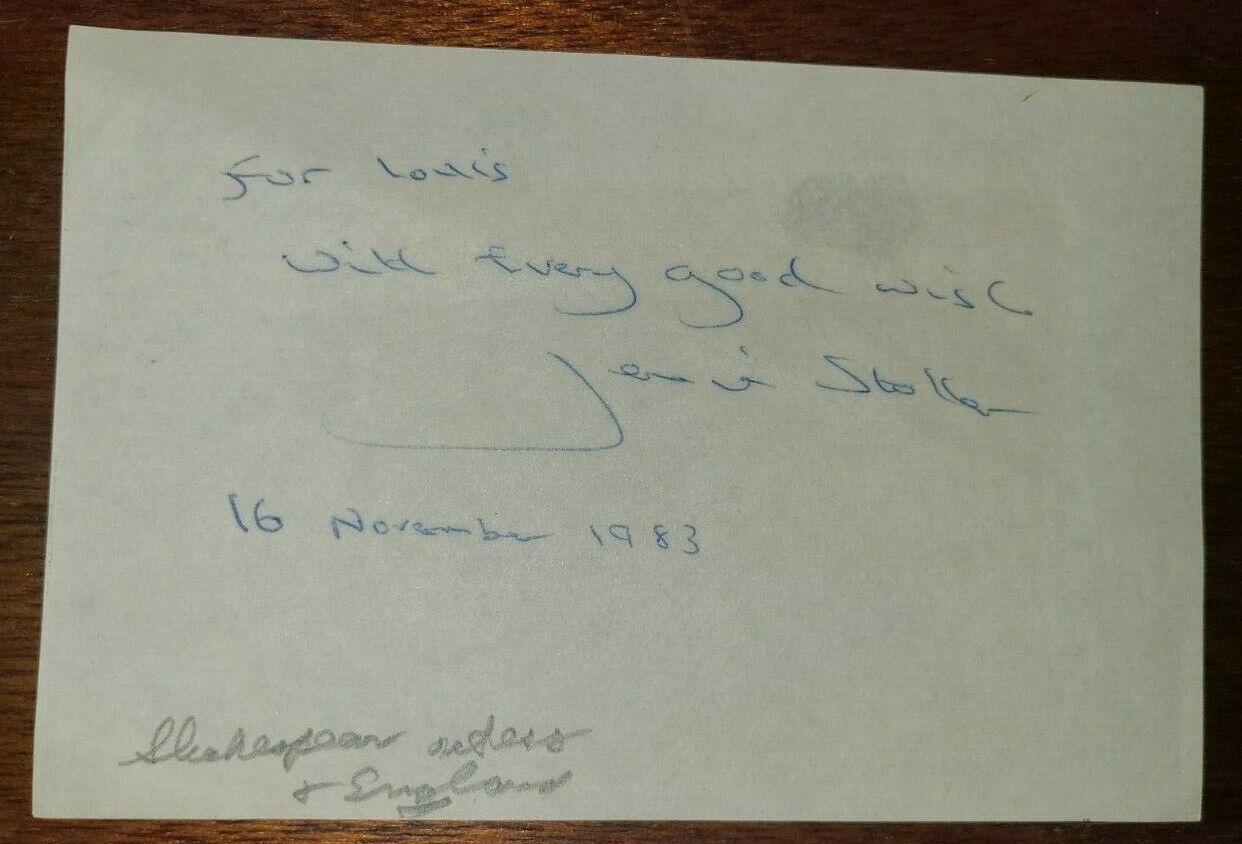 For Louis
With Every good wish
Jennie Stoller
16 November 1983
Shakespear actress
+ England